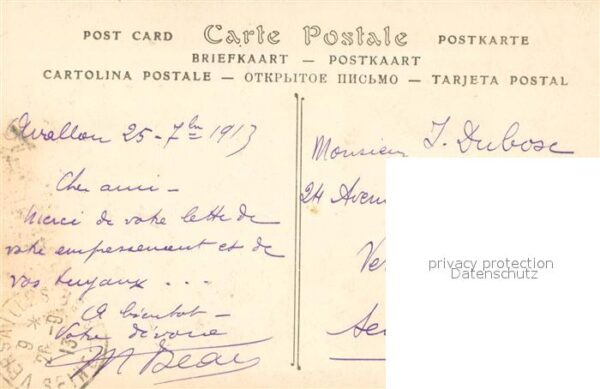 POST CARD Carte Postale POSTKARTE
BRIEFKAART — POSTKAART
CARTOLINA POSTALE — ОТКРЫТОЕ ПИСЬМО — TARJETA POSTAL
Avallon 25-7bre 1913
Cher ami —
Merci de votre lettre de
votre empressement et de
vos tuyaux . . .
A bientot —
Votre dévoué
Monsieur J. Dubosc
24 Aven
Ver
privacy protection
Datenschutz